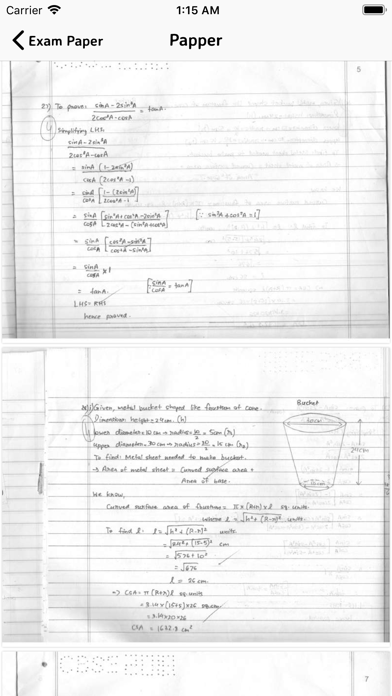 Carrier 1:15 AM
Exam Paper Papper
5
27) To prove: sinA - 2sin³A / 2cos³A - cosA = tanA.
Simplifying LHS.
sinA - 2sin³A
2cos³A - cosA
= sinA (1 - 2sin²A)
cosA (2cos²A - 1)
= sinA [1 - (2sin²A)]
cosA [2cos²A - 1]
= sinA [sin²A + cos²A - 2sin²A] [∵ sin²A + cos²A = 1]
cosA [2cos²A - (sin²A + cos²A)]
= sinA [cos²A - sin²A]
cosA [cos²A - sin²A]
= sinA x 1
cosA
= tanA. [sinA / cosA = tanA]
LHS = RHS
hence proved.
Given, metal bucket shaped like frustum of cone.
Bucket
Dimention: height = 24 cm. (h)
lower diameter = 10 cm → radius = 10/2 = 5cm (r)
upper diameter = 30 cm → radius = 30/2 = 15 cm
24cm
To find: Metal sheet needed to make bucket.
→ Area of metal sheet = Curved surface area +
Area of base.
We know,
Curved surface area of frustum = π x (R+r) x l sq. units.
where l = √h² + (R-r)² units.
To find l: l = √h² + (R-r)² units.
= √24² + (15-5)² cm
= √576 + 10²
= √676
l = 26 cm.
=> CSA = π (R+r) l sq. units
= 3.14 x (15+5) x 26 sq. cm
= 3.14 x 20 x 26
CSA = 1632.8 cm²
CBSE
7